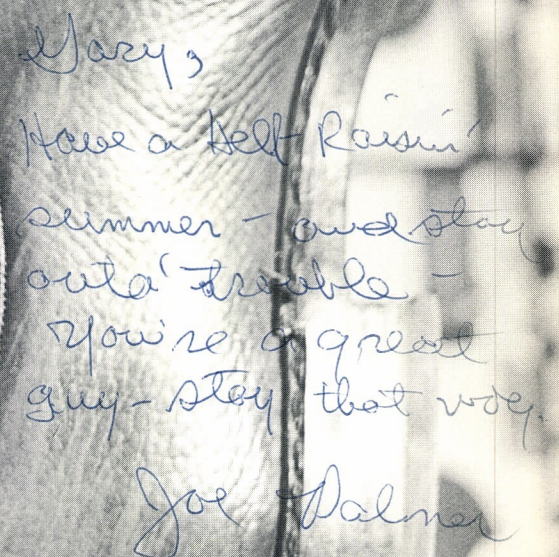 Gary,
Have a Hell Raisin'
summer - and stay
outa' trouble -
You're a great
guy - stay that way.
Joe Palmer